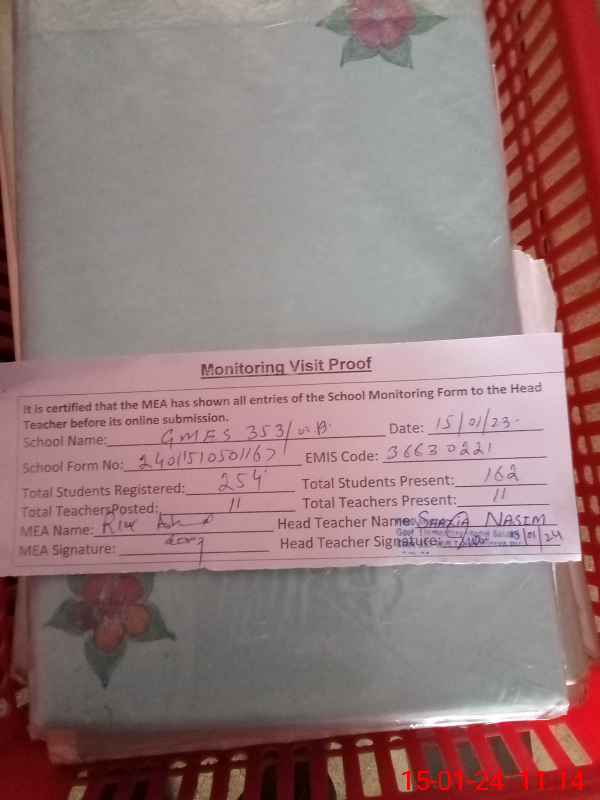 Monitoring Visit Proof
It is certified that the MEA has shown all entries of the School Monitoring Form to the Head
Teacher before its online submission.
School Name: GMES 353/W.B. Date: 15/01/23.
School Form No: 24011510501167 EMIS Code: 36630221
Total Students Registered: 254 Total Students Present: 162
Total Teachers Posted: 11 Total Teachers Present: 11
MEA Name: Head Teacher Name: SHAZIA NASIM
MEA Signature: Head Teacher Signature: 15/01/24
15-01-24 11:14